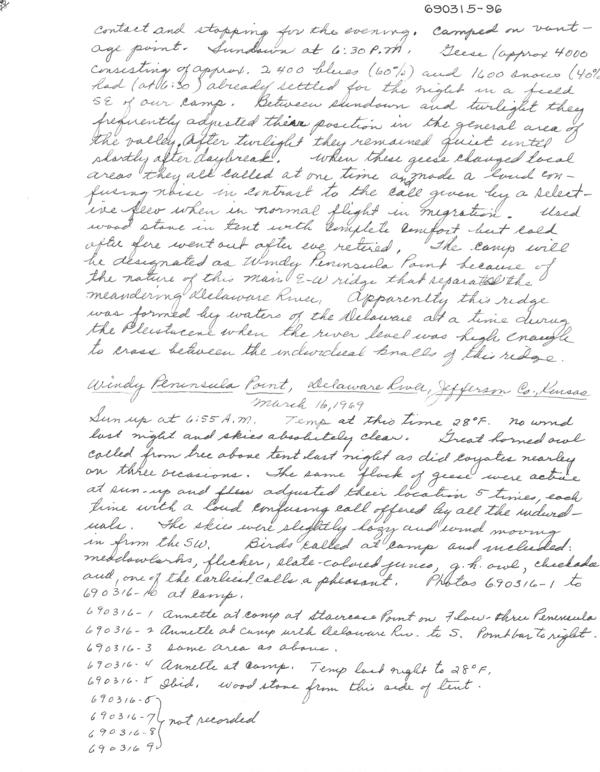 690315-96
contact and stopping for the evening. Camped on vant-
age point. Sundown at 6:30 P.M. Geese (approx 4000
consisting of approx. 2400 blues (60%) and 1600 snows (40%)
had (at 6:30) already settled for the night in a field
SE of our camp. Between sundown and twilight they
frequently adjusted their position in the general area of
the valley. After twilight they remained quiet until
shortly after daybreak. When these geese changed local
areas they all called at one time and made a loud con-
fusing noise in contrast to the call given by a select-
ive few when in normal flight in migration. Used
wood stove in tent with complete comfort but cold
after fire went out after we retired. The camp will
be designated as Windy Peninsula Point because of
the nature of this main E-W ridge that separates the
meandering Delaware River. Apparently this ridge
was formed by waters of the Delaware at a time during
the Pleistocene when the river level was high enough
to cross between the individual knalls of this ridge.
Windy Peninsula Point, Delaware River, Jefferson Co., Kansas
March 16, 1969
Sun up at 6:55 A.M. Temp at this time 28°F. No wind
last night and skies absolutely clear. Great horned owl
called from tree above tent last night as did coyotes nearley
on three occasions. The same flock of geese were active
at sun-up and adjusted their location 5 times, each
time with a loud confusing call offered by all the individ-
uals. The skies were slightly hazy and wind moving
in from the SW. Birds called at camp and included:
meadowlarks, flicker, slate-colored junco, g.h. owl, chickadee
and, one of the earliest calls a pheasant. Photos 690316-1 to
690316-10 at camp.
690316-1 Annette at camp at Staircase Point on Flow-three Peninsula
690316-2 Annette at camp with Delaware Riv. to S. Point bar to right.
690316-3 same area as above.
690316-4 Annette at camp. Temp last night to 28°F.
690316-5 Ibid. wood stove from this side of tent.
690316-6
690316-7 not recorded
690316-8
690316 9